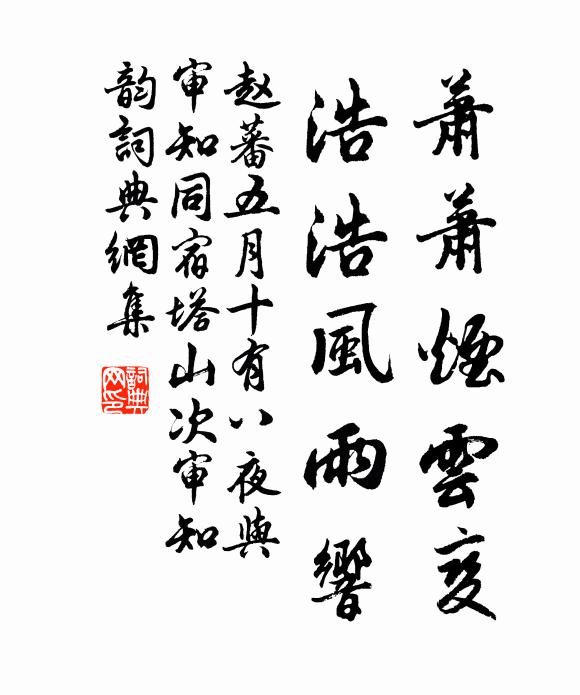 蕭蕭煙雲變
浩浩風雨響
赵蕃五月十有八夜與
审知同宿塔山次审知
韵詞典網集
詞典網印